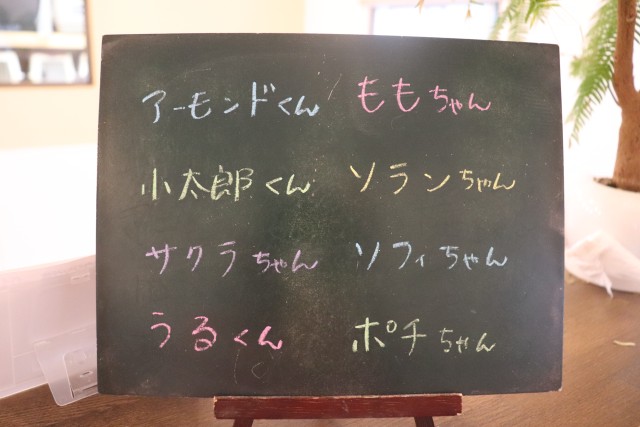 アーモンドくん ももちゃん
小太郎くん ソランちゃん
サクラちゃん ソフィちゃん
うるくん ポチちゃん